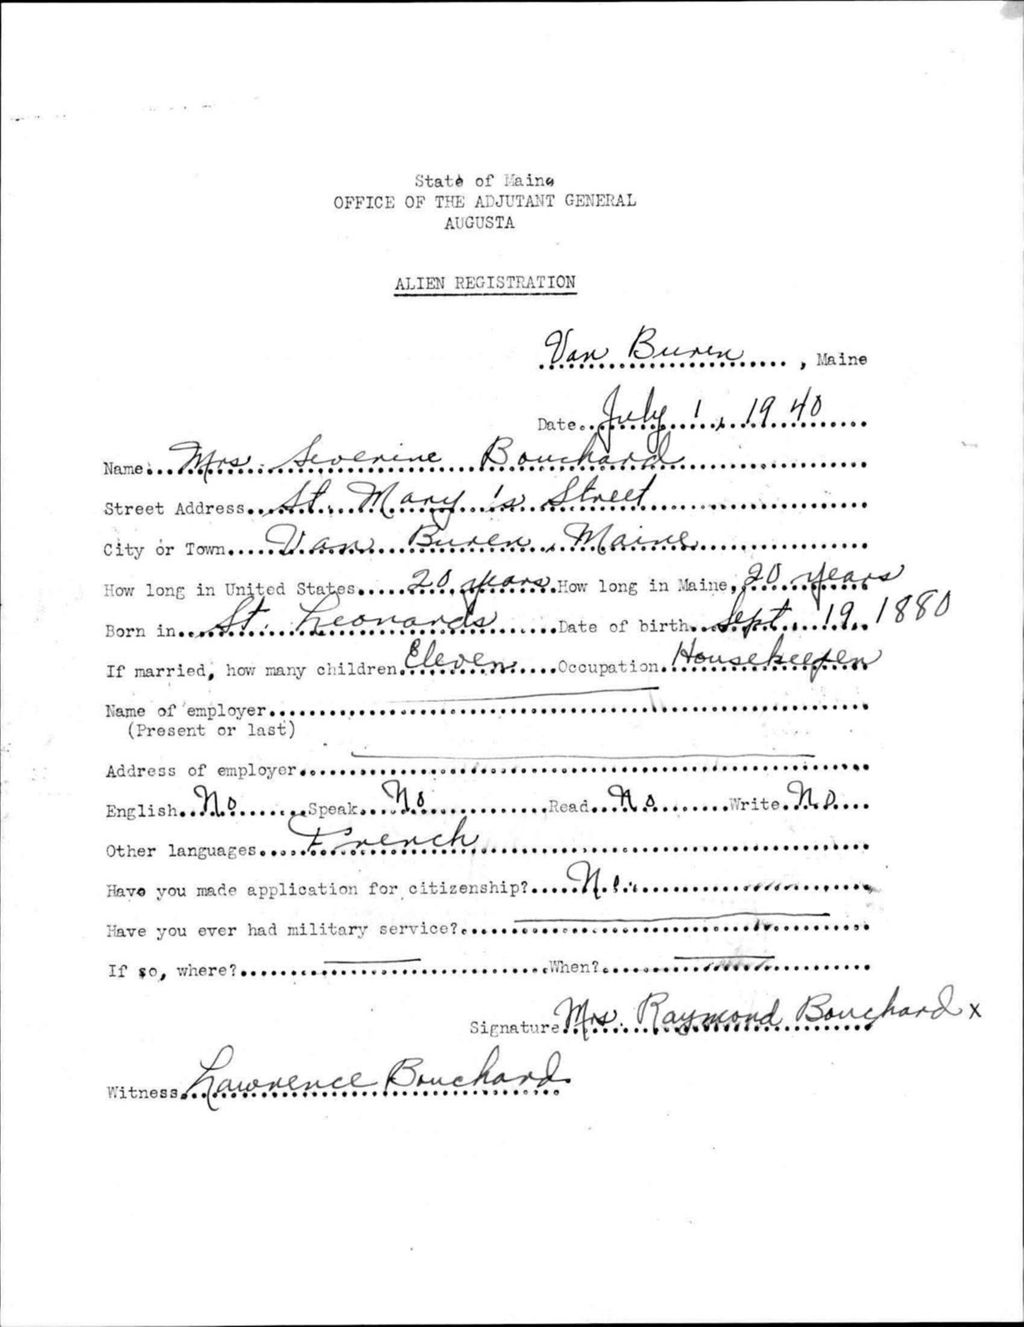 State of Maine
OFFICE OF THE ADJUTANT GENERAL
AUGUSTA
ALIEN REGISTRATION
Van Buren, Maine
Date July 1, 1940
Name Mrs. Severine Bouchard
Street Address St. Mary's Street
City or Town Van Buren, Maine
How long in United States 20 years How long in Maine 20 years
Born in St. Leonards Date of birth Sept. 19, 1880
If married, how many children Eleven Occupation Housekeeper
Name of employer
(Present or last)
Address of employer
English No Speak No Read No Write No
Other languages French
Have you made application for citizenship? No
Have you ever had military service?
If so, where? When?
Signature Mrs. Raymond Bouchard x
Witness Lawrence Bouchard